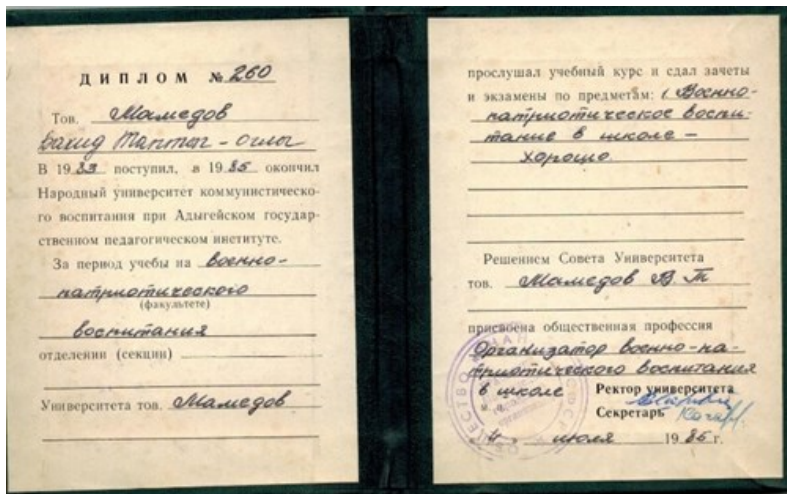 ДИПЛОМ № 260
Тов. Мамедов
Вахид Таптыг-оглы
В 1983 поступил, в 1985 окончил
Народный университет коммунистическо-
го воспитания при Адыгейском государ-
ственном педагогическом институте.
За период учебы на военно-
патриотического
(факультете)
воспитания
отделении (секции)
Университета тов. Мамедов
прослушал учебный курс и сдал зачеты
и экзамены по предметам: Военно-
патриотическое воспи-
тание в школе —
хорошо.
Решением Совета Университета
тов. Мамедов В. Т
присвоена общественная профессия
Организатор военно-па-
триотического воспитания
в школе Ректор университета
М. П.
Секретарь
июля 1985 г.
ОБЩЕСТВО ЗНАН